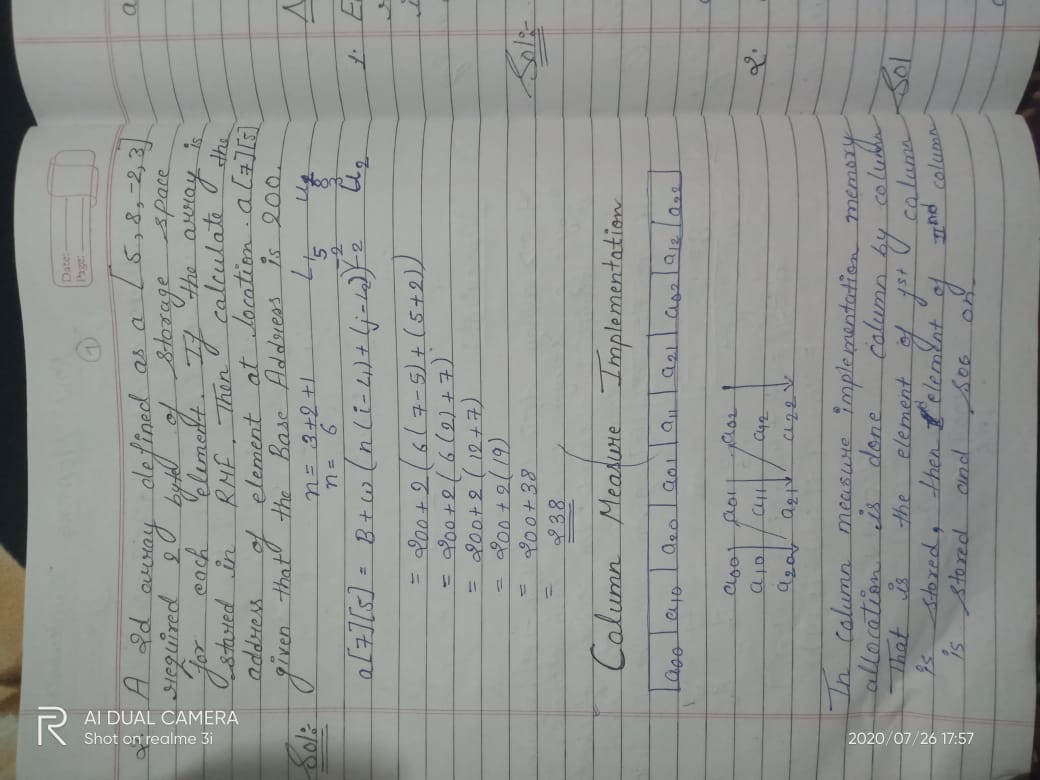 Date:
Page:
1
2. A 2d array defined as a [5,8,-2,3]
required 2 byte of storage space
for each element. If the array is
stored in RMF. Then calculate the
address of element at location a[7][5]
given that the Base Address is 200.
Sol:- n = 3+2+1 L1 u1
n = 6 5 8
-2 3
a[7][5] = B+w (n(i-L1)+(j-L2)) -2 U2
= 200+2 (6(7-5)+(5+2))
= 200+2 (6(2)+7)
= 200+2 (12+7)
= 200+2(19)
= 200+38
= 238
Column Measure Implementation
a00 a10 a20 a01 a11 a21 a02 a12 a22
a00 a01 a02
a10 a11 a12
a20 a21 a22
In column measure implementation memory
allocation is done column by column
That is the element of 1st column
is stored, then element of IInd column
is stored and soo on.
1.
Sol:-
2.
Sol
R AI DUAL CAMERA
Shot on realme 3i
2020/07/26 17:57